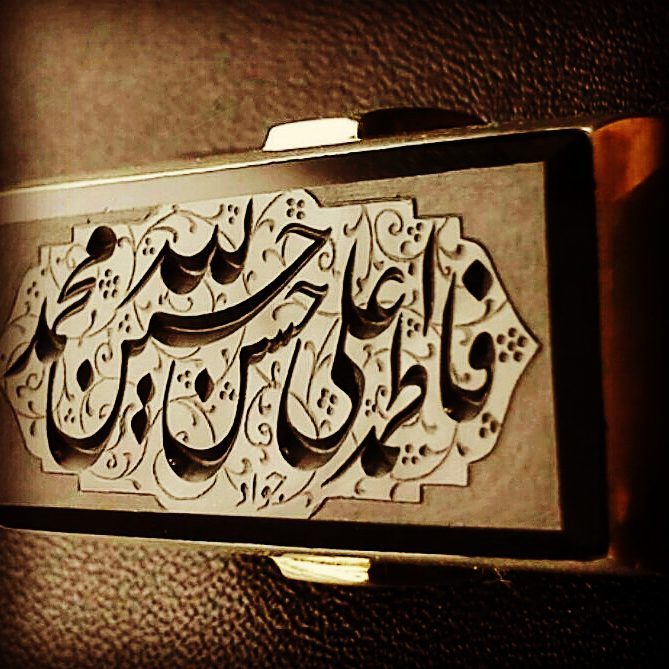 فاطمه علی حسن حسین محمد
جواد